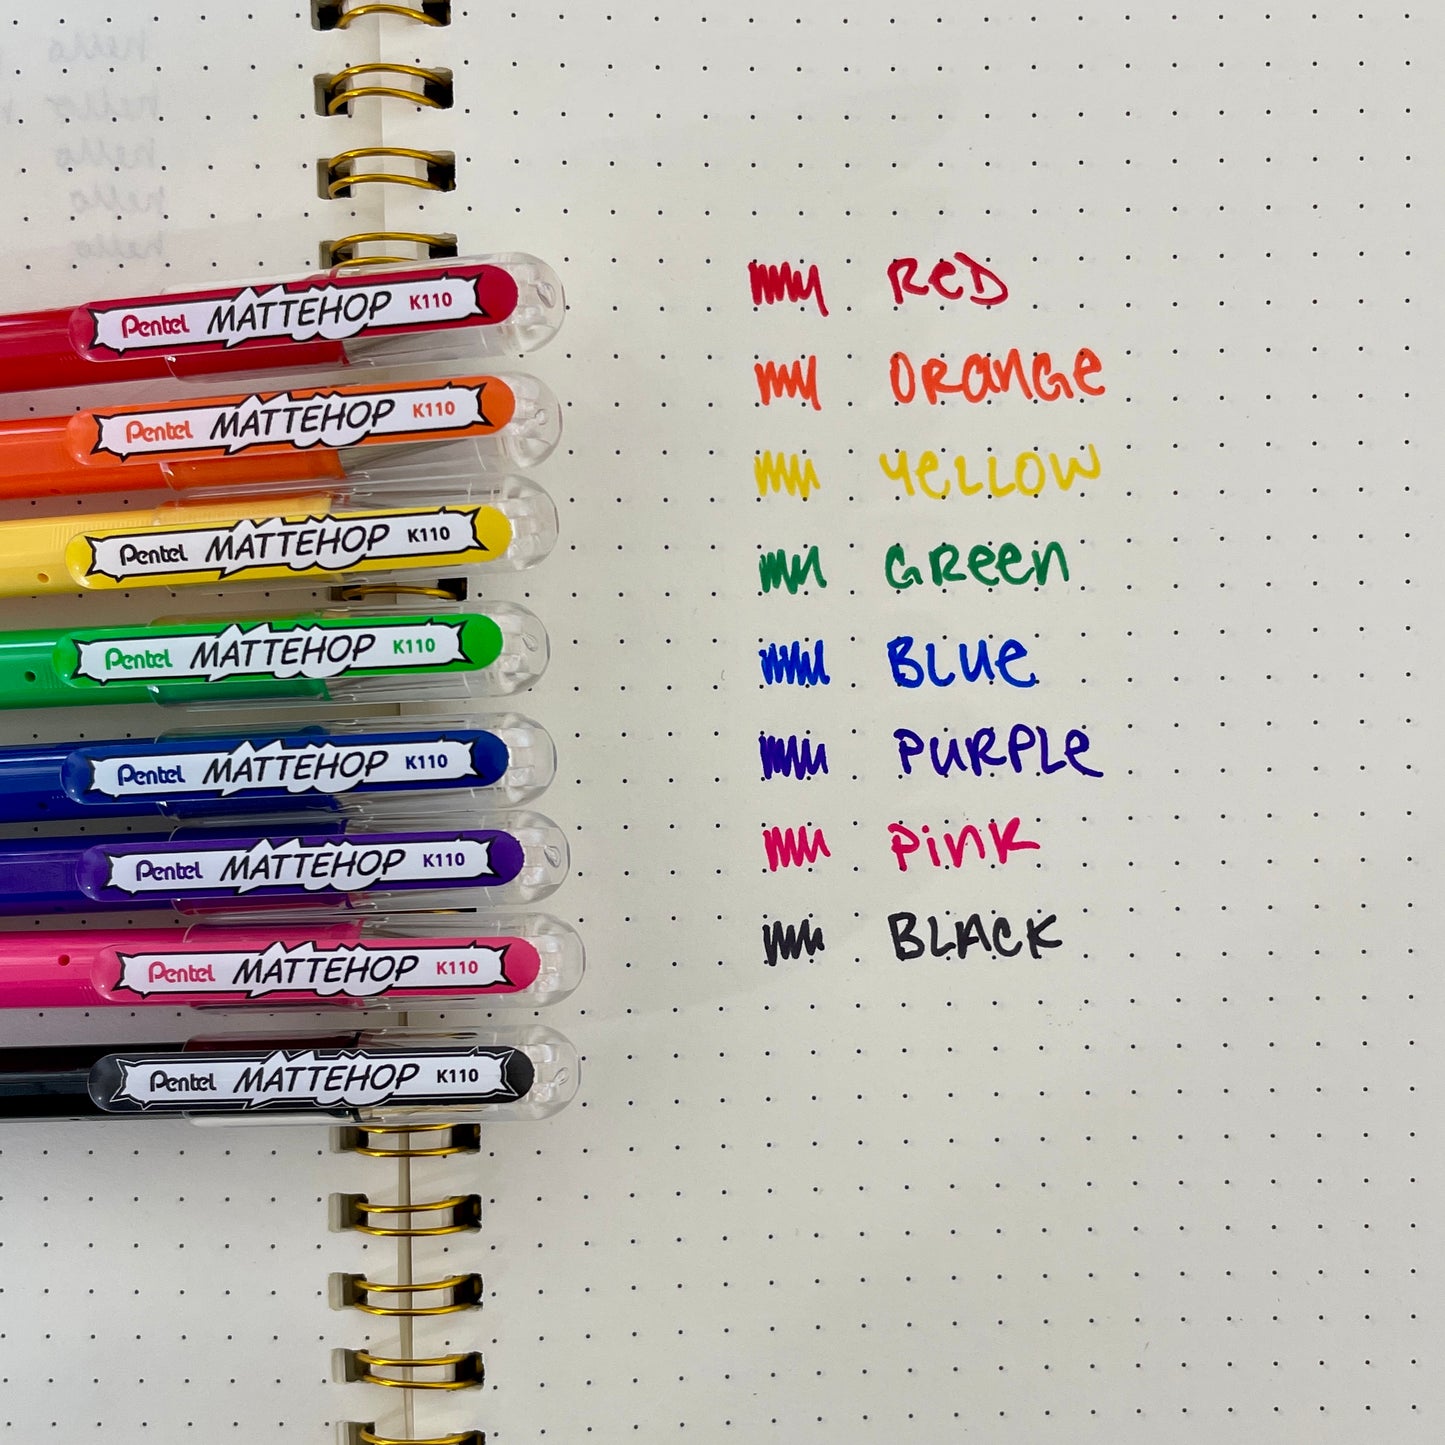 hello
hello
hello
hello
hello
Pentel MATTEHOP K110
Pentel MATTEHOP K110
Pentel MATTEHOP K110
Pentel MATTEHOP K110
Pentel MATTEHOP K110
Pentel MATTEHOP K110
Pentel MATTEHOP K110
Pentel MATTEHOP K110
ReD
ORanGe
YeLLOW
GReen
BLUe
PURPLe
PinK
BLACK